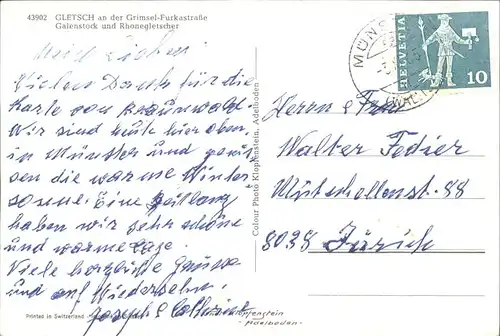 43902 GLETSCH an der Grimsel-Furkastraße
Galenstock und Rhonegletscher
Meine Lieben!
Vielen Dank für die
Karte von Braunwald.
Wir sind heute hier oben,
in Münster und genies
sen die warme Winter
sonne. Eine Zeitlang
haben wir sehr schöne
und warme Tage.
Viele herzliche Grüsse
und auf Wiedersehn.
Printed in Switzerland
Colour Photo Klopfenstein, Adelboden
Klopfenstein
Adelboden
MÜNS
HELVETIA
10
Herrn & Frau
Walter Fedier
88
8038 Zürich